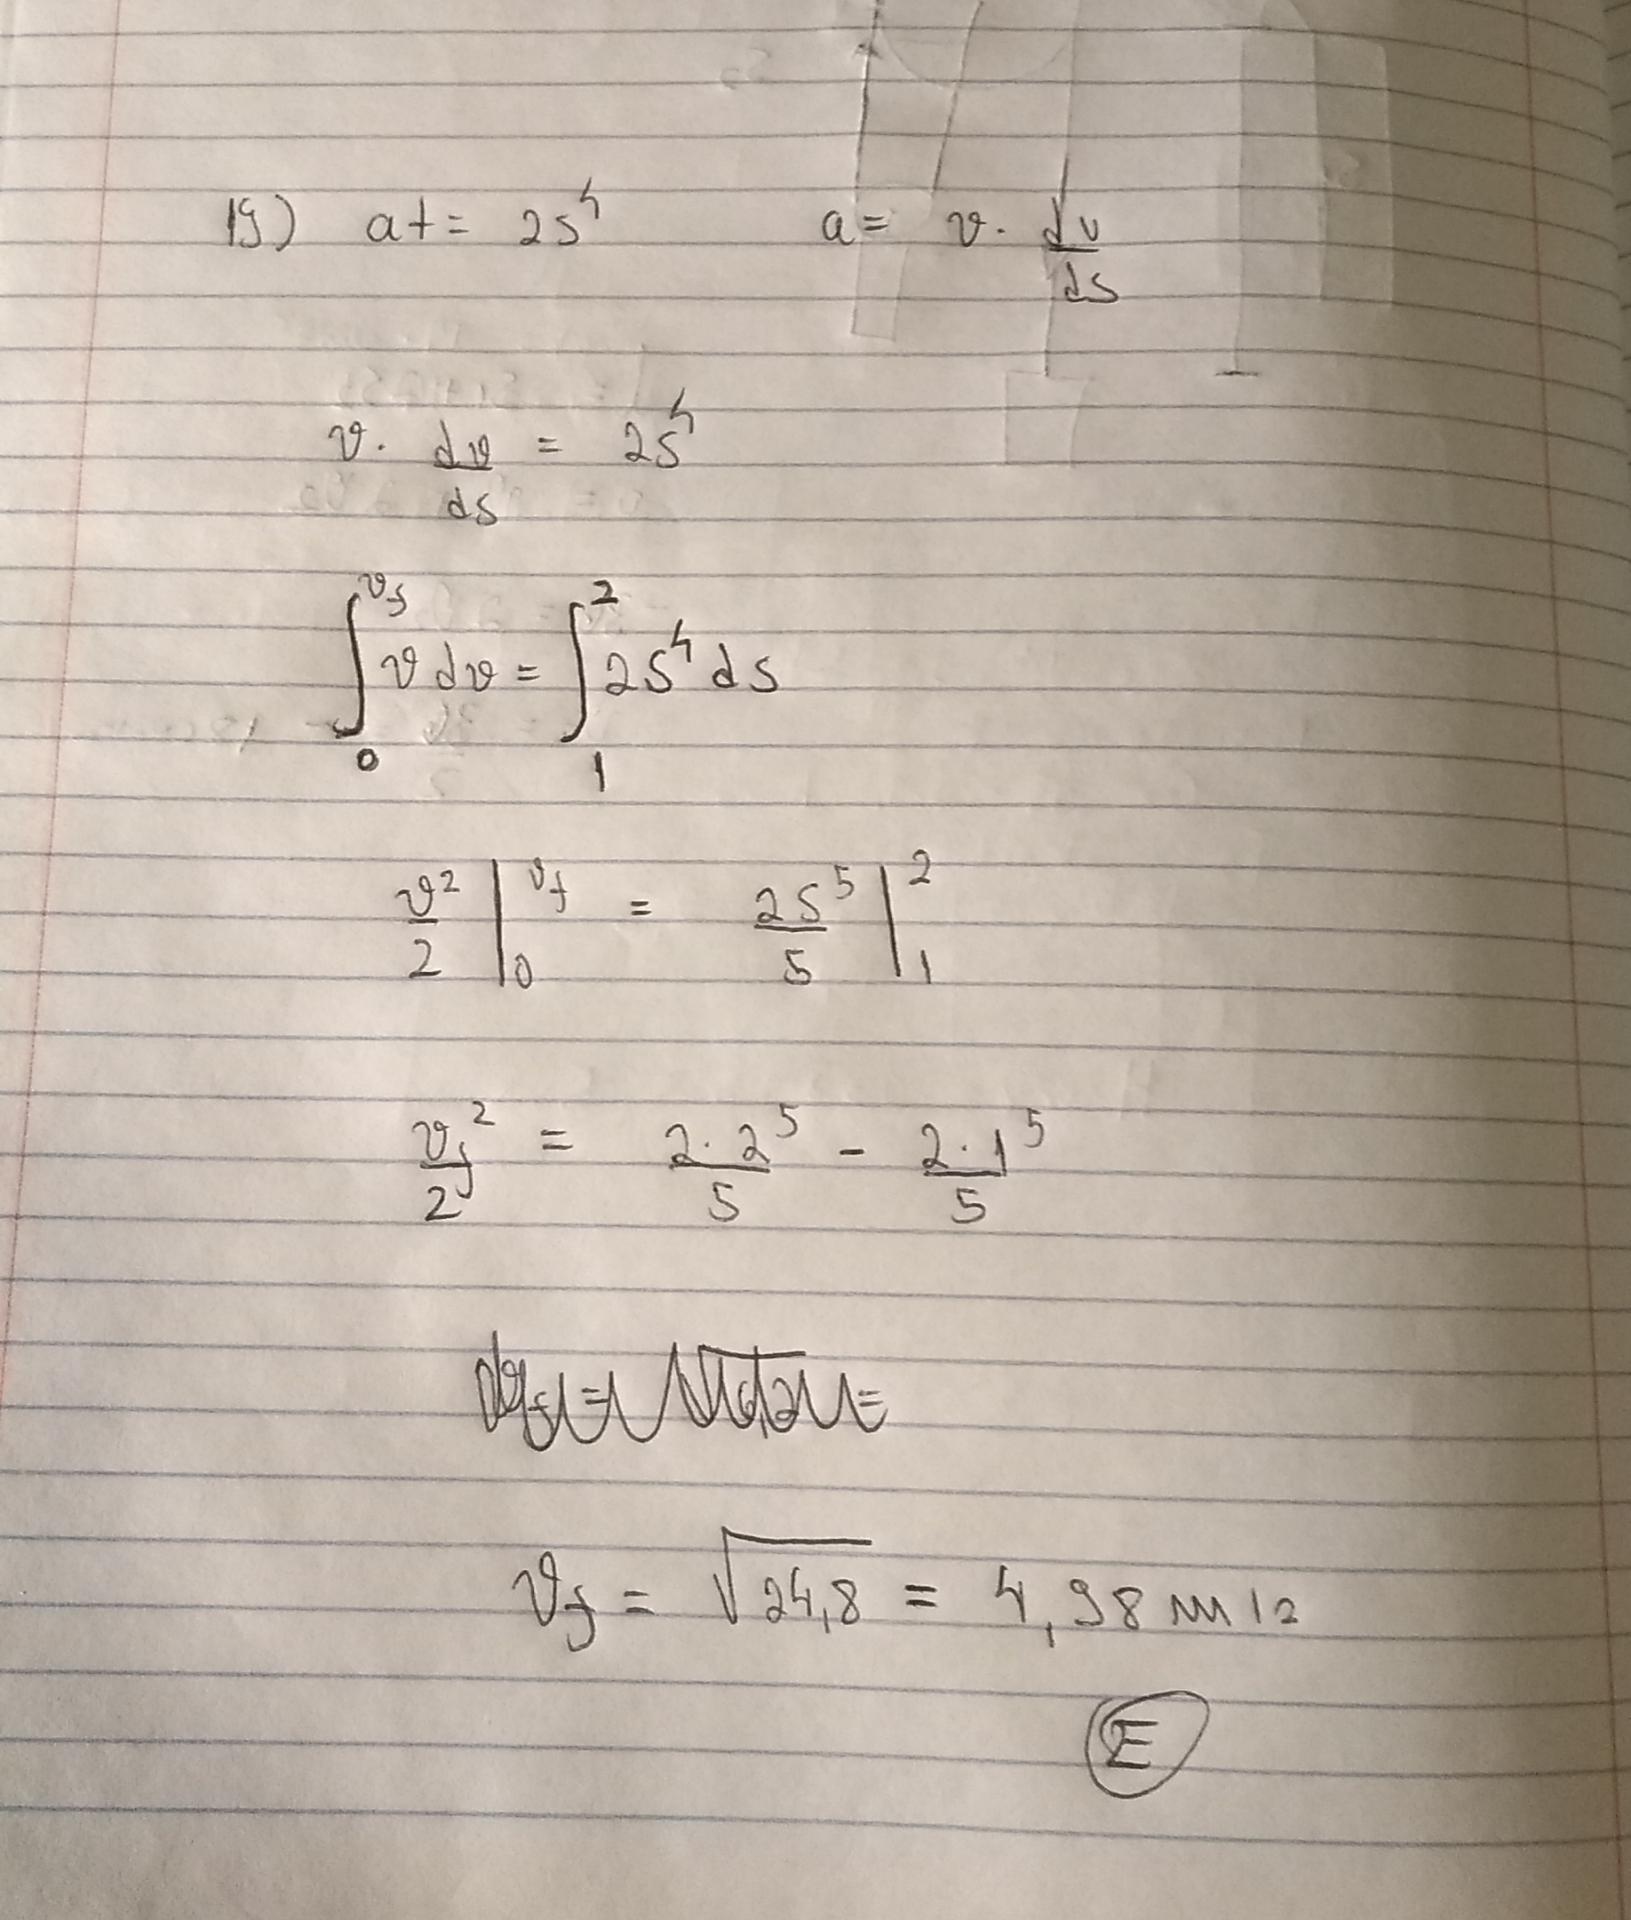 19) at = 2s⁴ a = v. dv/ds
v. dv/ds = 2s⁴
∫₀^vf v dv = ∫₁² 2s⁴ ds
v²/2 |₀^vf = 2s⁵/5 |₁²
vf²/2 = 2.2⁵/5 - 2.1⁵/5
vf = √24,8 = 4,98 m/s
E